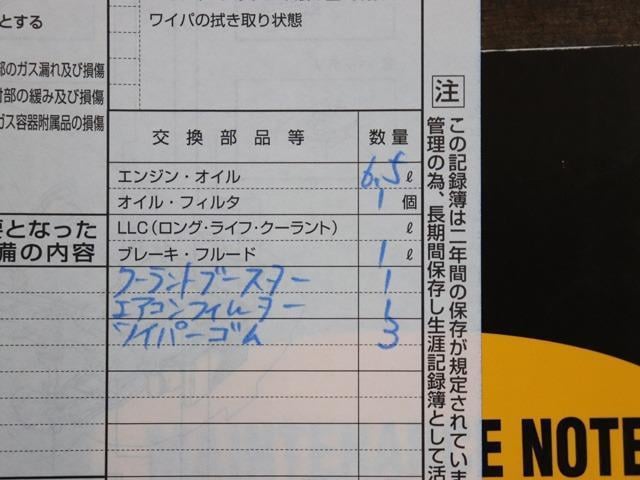 とする
ワイパの拭き取り状態
部のガス漏れ及び損傷
付部の緩み及び損傷
ガス容器附属品の損傷
交換部品等 数量
エンジン・オイル 6.5 ℓ
オイル・フィルタ 1 個
LLC(ロング・ライフ・クーラント) ℓ
ブレーキ・フルード 1 ℓ
クーラントブースター 1
エアコンフィルター 1
ワイパーゴム 3
要となった
備の内容
注
この記録簿は二年間の保存が規定されていま
管理の為、長期間保存し生涯記録簿として活
E NOTE